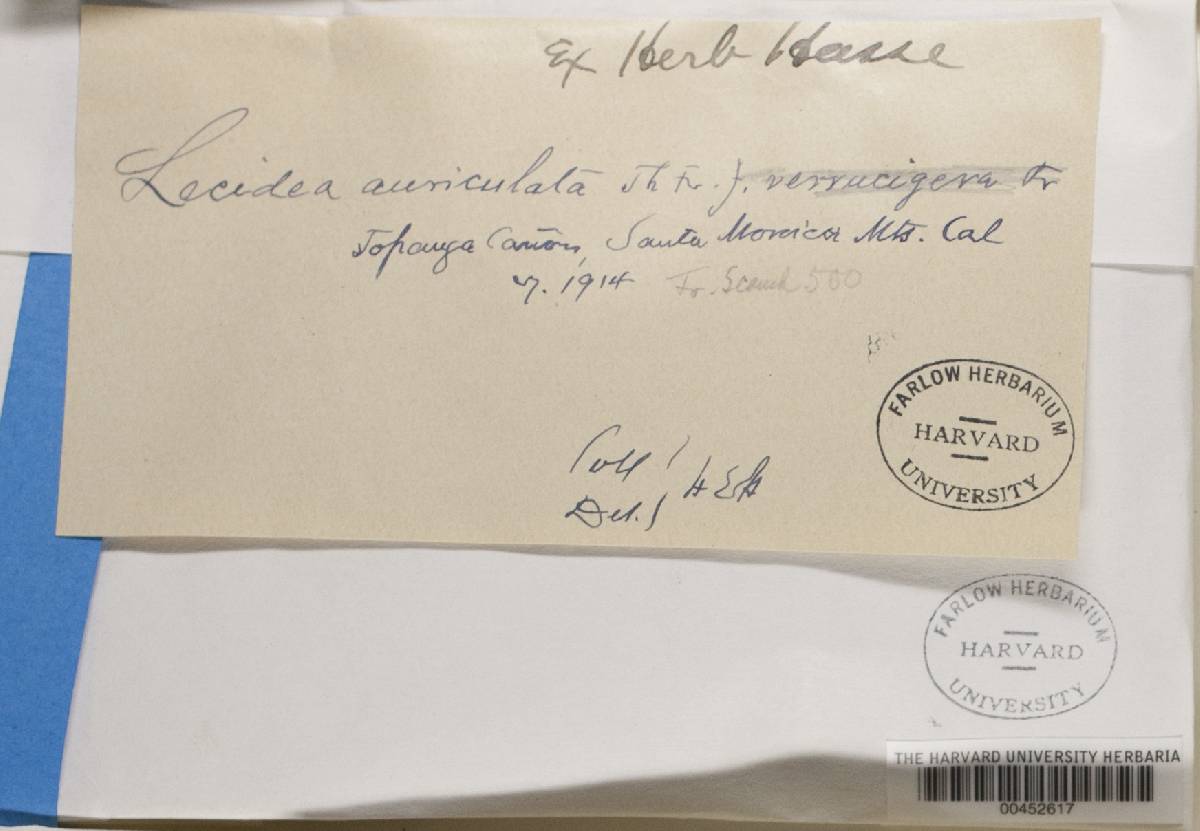 Ex Herb Hasse
Lecidea auriculata Th Fr. f. verrucigera Fr
Topanga Cañon, Santa Monica Mts. Cal
1914 Fr. 500
Coll!
Det. HEH
FARLOW HERBARIUM
HARVARD
UNIVERSITY
FARLOW HERBARIUM
HARVARD
UNIVERSITY
THE HARVARD UNIVERSITY HERBARIA
00452617